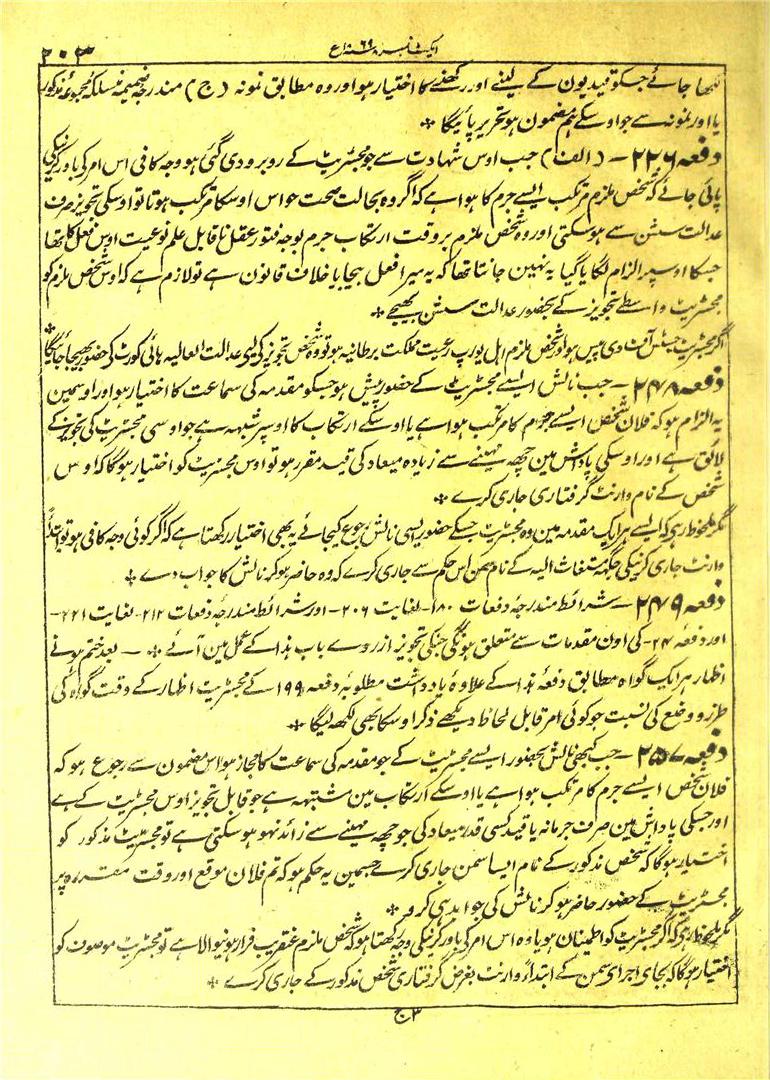 ۲۰۳
ایکٹ نمبر ۸ سنہ ۶۹ ۱۸ع
لکھا جائے جسکو قیدیون کے لینے اور رکھنے کا اختیار ہو اور وہ مطابق نمونہ (ج) مندرجہ ضمیمہ منسلکہ مجموعۂ مذکور
یا اور نمونہ سے جو اوسکے ہم مضمون ہو تحریر پائیگا *
دفعہ ۲۲۶ — (الف) جب اوس شہادت سے جو مجسٹریٹ کے روبرو دی گئی ہو وجہ کافی اس امر کی باور کرنیکی
پائی جائے کہ شخص ملزم مرتکب ایسے جرم کا ہوا ہے کہ اگر وہ بحالت صحت حواس اوسکا مرتکب ہوتا تو اوسکی تجویز صرف
عدالت سشن سے ہوسکتی اور وہ شخص ملزم بروقت ارتکاب جرم بوجہ فتور عقل ناقابل علم نوعیت اوس فعل کا تھا
جسکا اوسپر الزام لگایا گیا یہ نہین جانتا تھا کہ یہ میرا فعل بیجا یا خلاف قانون ہے تو لازم ہے کہ اوس شخص ملزم کو
مجسٹریٹ واسطے تجویز کے بحضور عدالت سشن بھیجے *
اگر مجسٹریٹ جسٹس آف دی پیس ہو اور شخص ملزم اہل یورپ رعیت مملکت برطانیہ ہو تو وہ شخص تجویز کیلیے عدالت العالیہ ہائی کورٹ کی حضور بھیجا جائیگا *
دفعہ ۲۴۸ — جب نالش ایسے مجسٹریٹ کے حضور پیش ہو جسکو مقدمہ کی سماعت کا اختیار ہو اور اوسمین
یہ الزام ہو کہ فلان شخص ایسے جرم کا مرتکب ہوا ہے یا اوسکے ارتکاب کا اوسپر شبہہ ہے جو اوسی مجسٹریٹ کی تجویز کے
لائق ہے اور اوسکی پاداش مین چھہ مہینے سے زیادہ میعاد کی قید مقرر ہو تو اوس مجسٹریٹ کو اختیار ہوگا کہ اوس
شخص کے نام وارنٹ گرفتاری جاری کرے *
مگر ملحوظ رہی کہ ایسے ہر ایک مقدمہ مین وہ مجسٹریٹ جسکے حضور ایسی نالش رجوع کیجائے یہ بھی اختیار رکھتا ہے کہ اگر کوئی وجہ کافی ہو تو ابتدائً
وارنٹ جاری کرنیکی جگہ مستغاث الیہ کے نام سمن اس حکم سے جاری کرے کہ وہ حاضر ہو کر نالش کا جواب دے *
دفعہ ۲۴۹ — شرائط مندرجۂ دفعات ۱۸۰ لغایت ۲۰۶ - اور شرائط مندرجۂ دفعات ۲۱۲ لغایت ۲۲۱ -
اور دفعۂ ۲۴ - کی اون مقدمات سے متعلق ہونگی جنکی تجویز از روے باب ہذا کے عمل مین آئے * — بعد ختم ہونے
اظہار ہر ایک گواہ مطابق دفعۂ ہذا کے علاوہ یادداشت مطلوبۂ دفعہ ۱۹۹ کے مجسٹریٹ اظہار کے وقت گواہ کی
طرز و وضع کی نسبت جو کوئی امر قابل لحاظ دیکھے ذکر اوسکا بھی لکھہ لیگا *
دفعہ ۲۵۷ — جب کبھی نالش بحضور ایسے مجسٹریٹ کے جو مقدمہ کی سماعت کا مجاز ہو اس مضمون سے رجوع ہو کہ
فلان شخص ایسے جرم کا مرتکب ہوا ہے یا اوسکے ارتکاب مین مشتبہ ہے جو قابل تجویز اوس مجسٹریٹ کے ہے
اور جسکی پاداش مین صرف جرمانہ یا قید کسی قدر میعاد کی جو چھہ مہینے سے زائد نہو ہوسکتی ہے تو مجسٹریٹ مذکور کو
اختیار ہوگا کہ شخص مذکور کے نام ایسا سمن جاری کرے جسمین یہ حکم ہو کہ تم فلان موقع اور وقت مقررہ پر
مجسٹریٹ کے حضور حاضر ہو کر نالش کی جوابدہی کرو *
مگر ملحوظ رہی کہ اگر مجسٹریٹ کو اطمینان ہو یا وہ اس امر کی باور کرنیکی وجہ رکھتا ہو کہ شخص ملزم عنقریب فرار ہونیوالا ہے تو مجسٹریٹ موصوف کو
اختیار ہوگا کہ بجای اجرای سمن کے ابتدائً وارنٹ بغرض گرفتاری شخص مذکور کے جاری کرے *
۳ ج